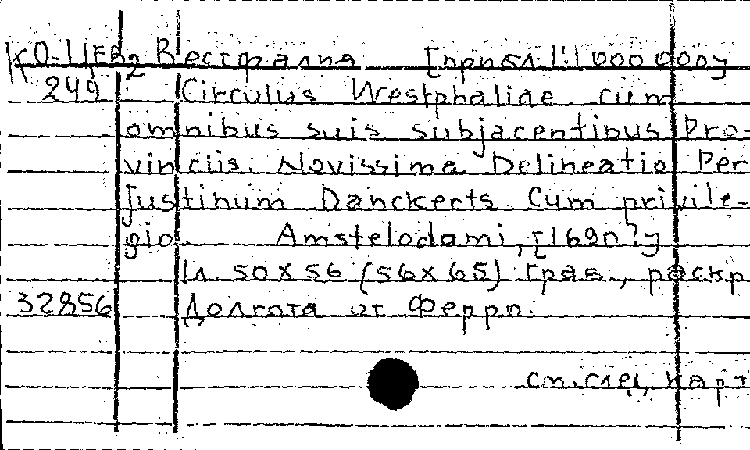 КО-1/ГВ2 Вестфалия [прибл. 1:1 000 000]
249 Circulus Westphaliae cum
omnibus suis subjacentibus Pro-
vinciis. Novissima Delineatio Per
Justinum Danckerts Cum privile-
gio. Amstelodami, [1690?]
1л. 50x56 (56x65) грав., раскр
32856 Долгота от Ферро.
см. след. карт